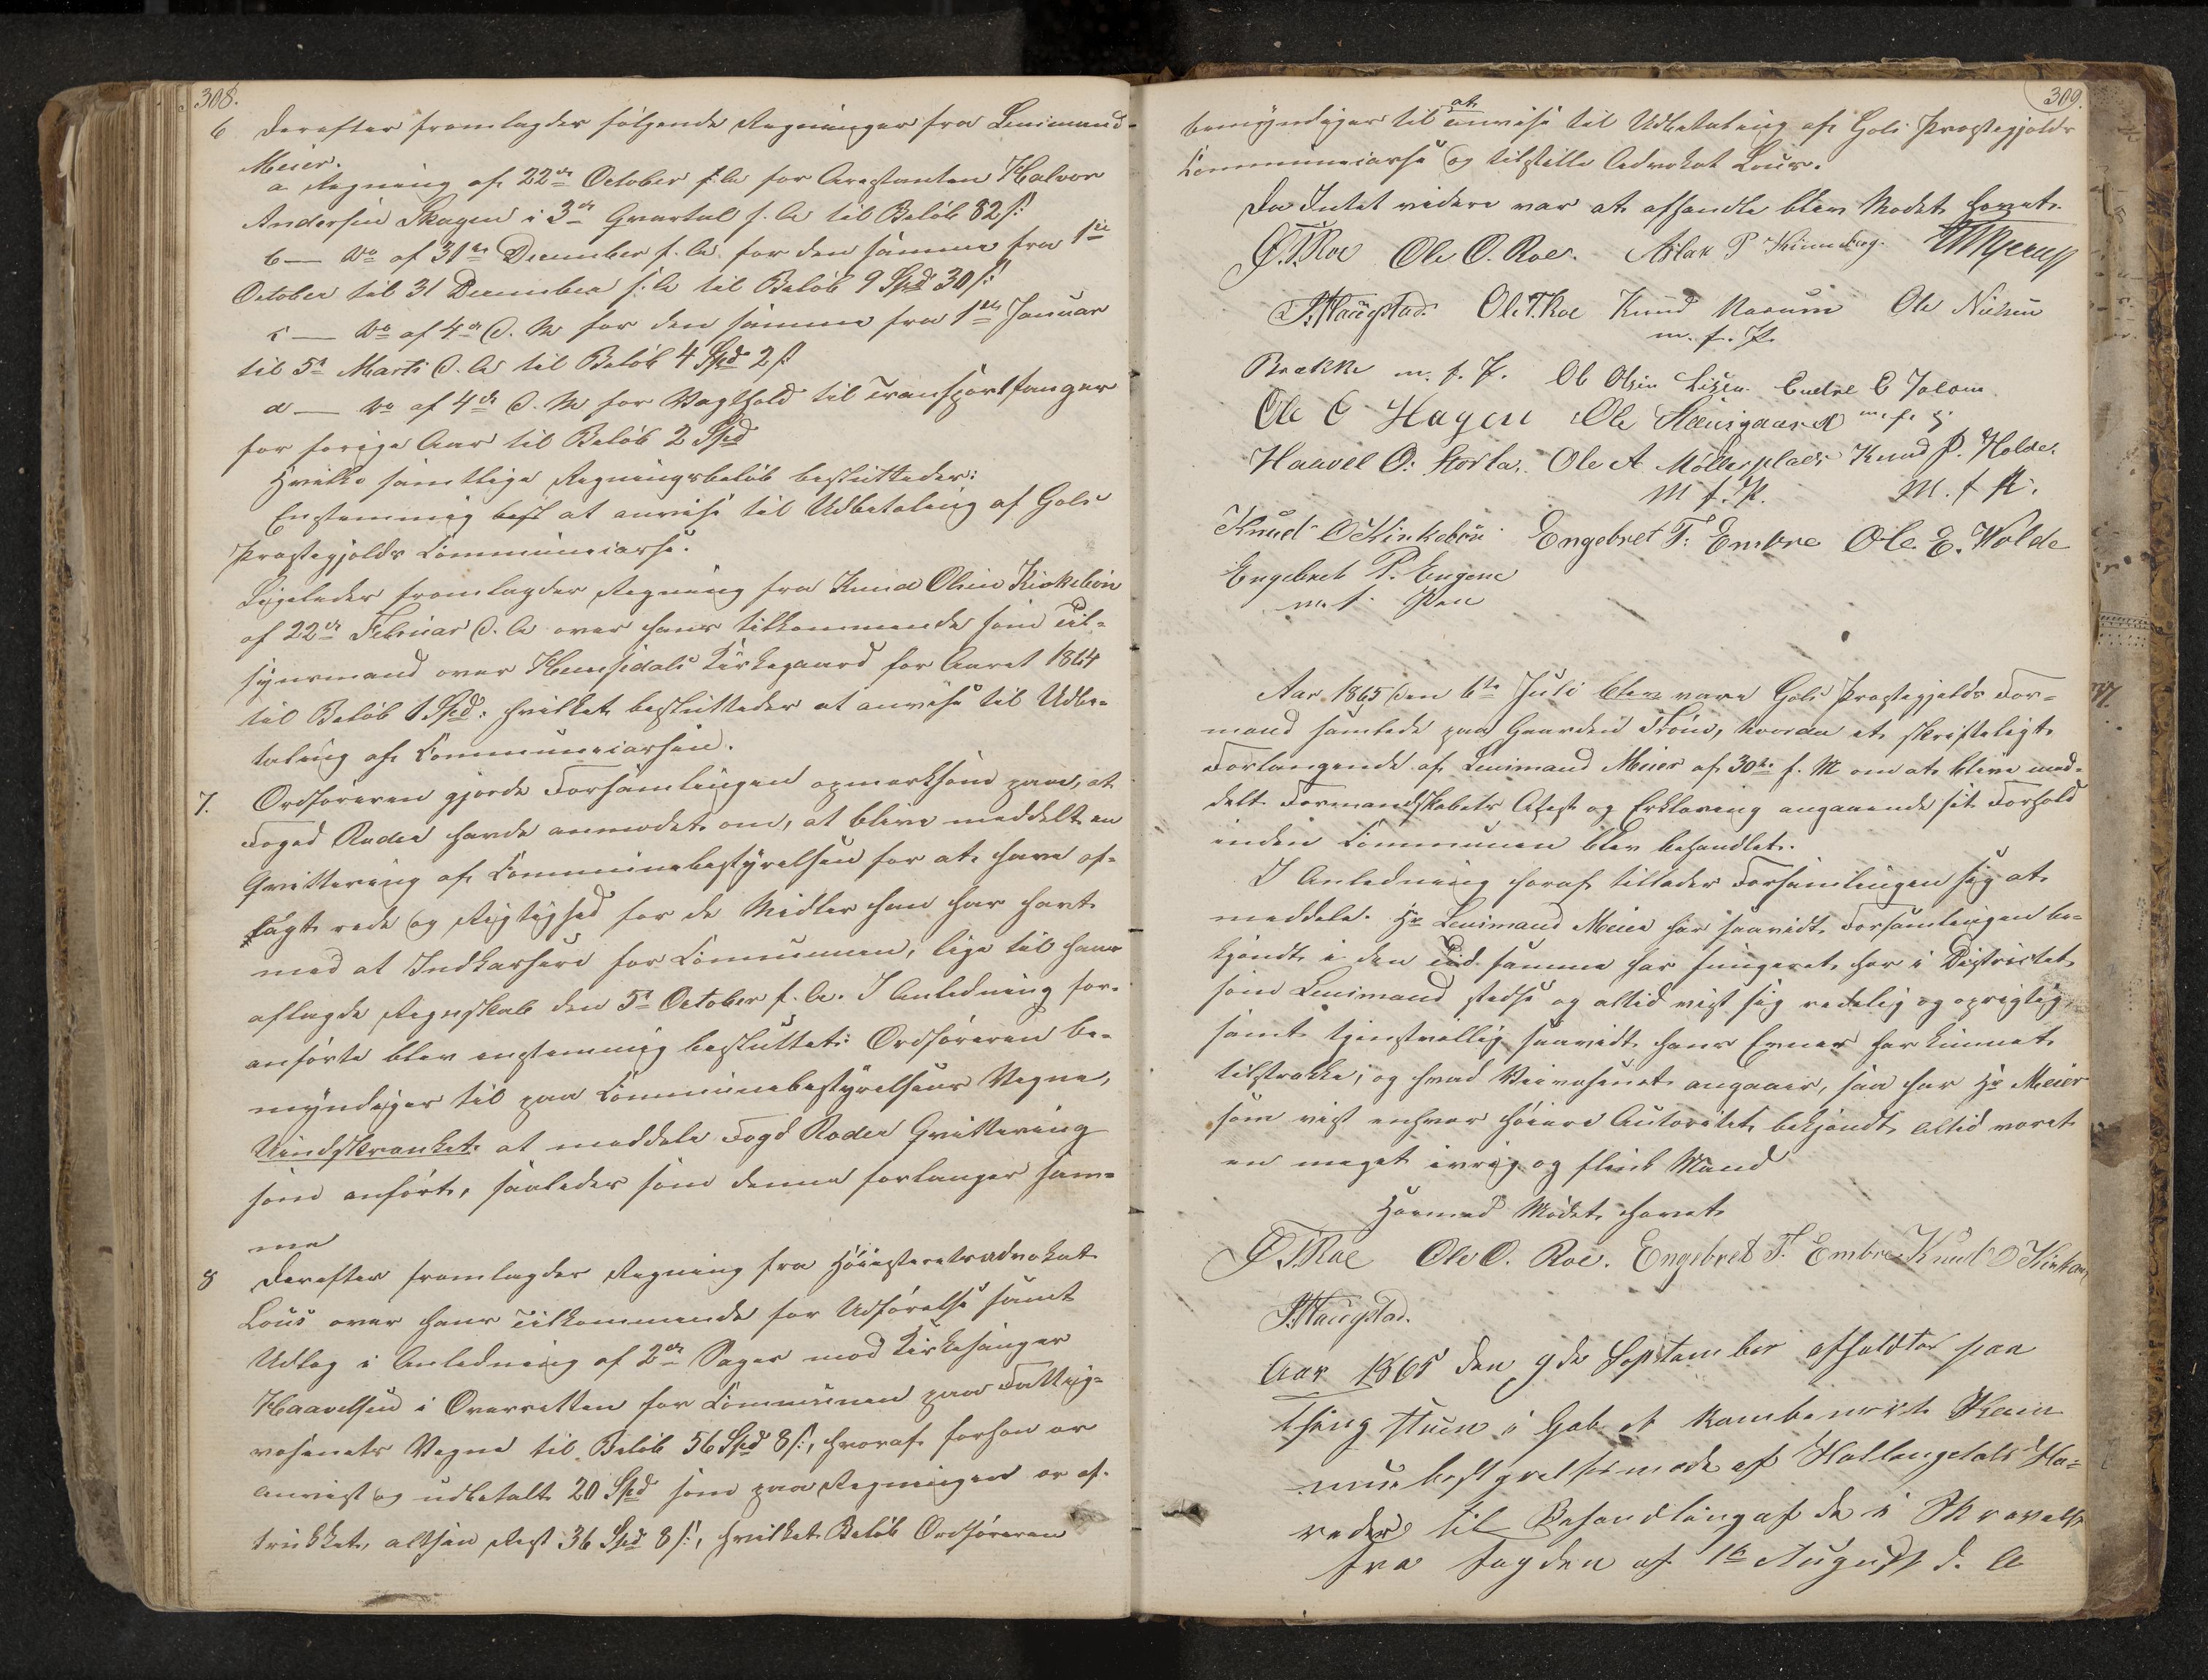 308.
6 Derefter fremlagdes følgende Regninger fra Lensmand
Meier.
a Regning af 22de October f. A. for Arrestanten Halvor
Andersen Skagen i 3de Qvartal f. A. til Beløb 82 s:
b — Do af 31te December f. A. for den samme fra 1ste
October til 31 December f. A. til Beløb 9 Spd 30 s:
c — Do af 4de d. M. for den samme fra 1ste Januar
til 5te Marts d. A. til Beløb 4 Spd 2 s:
d — Do af 4de d. M. for Vagthold til Transportfanger
for forige Aar til Beløb 2 Spd
Hvilke samtlige Regningsbeløb besluttedes:
Enstemmig besl at anvise til Udbetaling af Gols
Præstegjelds Communecasse.
Ligeledes fremlagdes Regning fra Knud Olsen Kirkebøn
af 22de Februar d. A. over hans tilkommende som Til-
synsmand over Hemsedals Kirkegaard for Aaret 1864
til Beløb 1 Spd: hvilket besluttedes at anvise til Udbe-
taling af Communecassen.
7. Ordføreren gjorde Forsamlingen opmerksom paa, at
Foged Rode havde anmodet om, at blive meddelt en
Qvittering af Communebestyrelsen for at have af-
lagt rede og Rigtighed for de Midler han har havt
med at Indkassere for Communen, lige til hans
aflagde Regnskab den 5te October f. A. I Anledning for-
anførte blev enstemmig besluttet: Ordføreren be-
myndiges til paa Communebestyrelsens Vegne,
Uindskrænket at meddele Fogd Rode Qvittering
som anført, saaledes som denne forlanger sam-
me
8 Derefter fremlagdes Regning fra Høiesteretsadvokat
Lous over hans Tilkommende for Udførelse samt
Udlæg i Anledning af 2de Sager mod Kirkesanger
Haavelsen i Overretten for Communen paa Fattig-
væsenets Vegne til Beløb 56 Spd 8 s:, hvoraf forhen er
anvist og udbetalt 20 Spd som paa Regningen er af-
trukket, altsaa Rest 36 Spd 8 s:, hvilket Beløb Ordføreren
309.
bemyndiges til at anvise til Udbetaling af Gols Præstegjelds
Communecasse og tilstille Advokat Lous.
Da Intet videre var at afhandle blev Modet hævet.
O. T. Roe Ole O. Roe. Aslak P
T. Haugstad. Ole T. Roe Knud Ole Nielsen
m. f. P.
Brække m. f. P. Ol Olsen Endre E
Ole O Hagen Ole m. f. P.
Haavel O: Storla. Ole A Møllerplads Knud P. Holde.
M f. P. M. f P.
Knud O Kirkebøn Engebret T: Embre Ole. E. Wolde
Engebret P. Eugene
m. f. Pen
Aar 1865 den 6te Juli blev vare Gols Præstegjelds For-
mænd samlede paa Gaarden Trøim, hvorda et skrifteligt
Forlangende af Lensmand Meier af 30te f. M om at blive med-
delt Formandskabets Atest og Erklæring angaaende sit Forhold
inden Communen blev behandlet.
I Anledning heraf tillader Forsamlingen sig at
meddele. Hr Lensmand Meier har saavidt Forsamlingen be-
kjendt i den Tid samme har fungeret her i Districtet
som Lensmand stedse og altid vist sig redelig og oprigtig,
samt tjenstvillig saavidt hans Evner har kunnet
tilstrække; og hvad Veivæsenet angaaer, saa har Hr Meier
som vist enhver høiere Autoritet bekjendt altid været
en meget ivrig og flink Mand
Hermed Mødet hævet
O T. Roe Ole O. Roe. Engebret T. Embre Knud O
T. Haugstad.
Aar 1865 den 9de September afholdtes paa
Thing stuen i Gol et Kom
mune bestyrelsesmøde af Hallingdals He-
reder til Behandling af de i Skrivelse
fra fogden af 1te August d. A